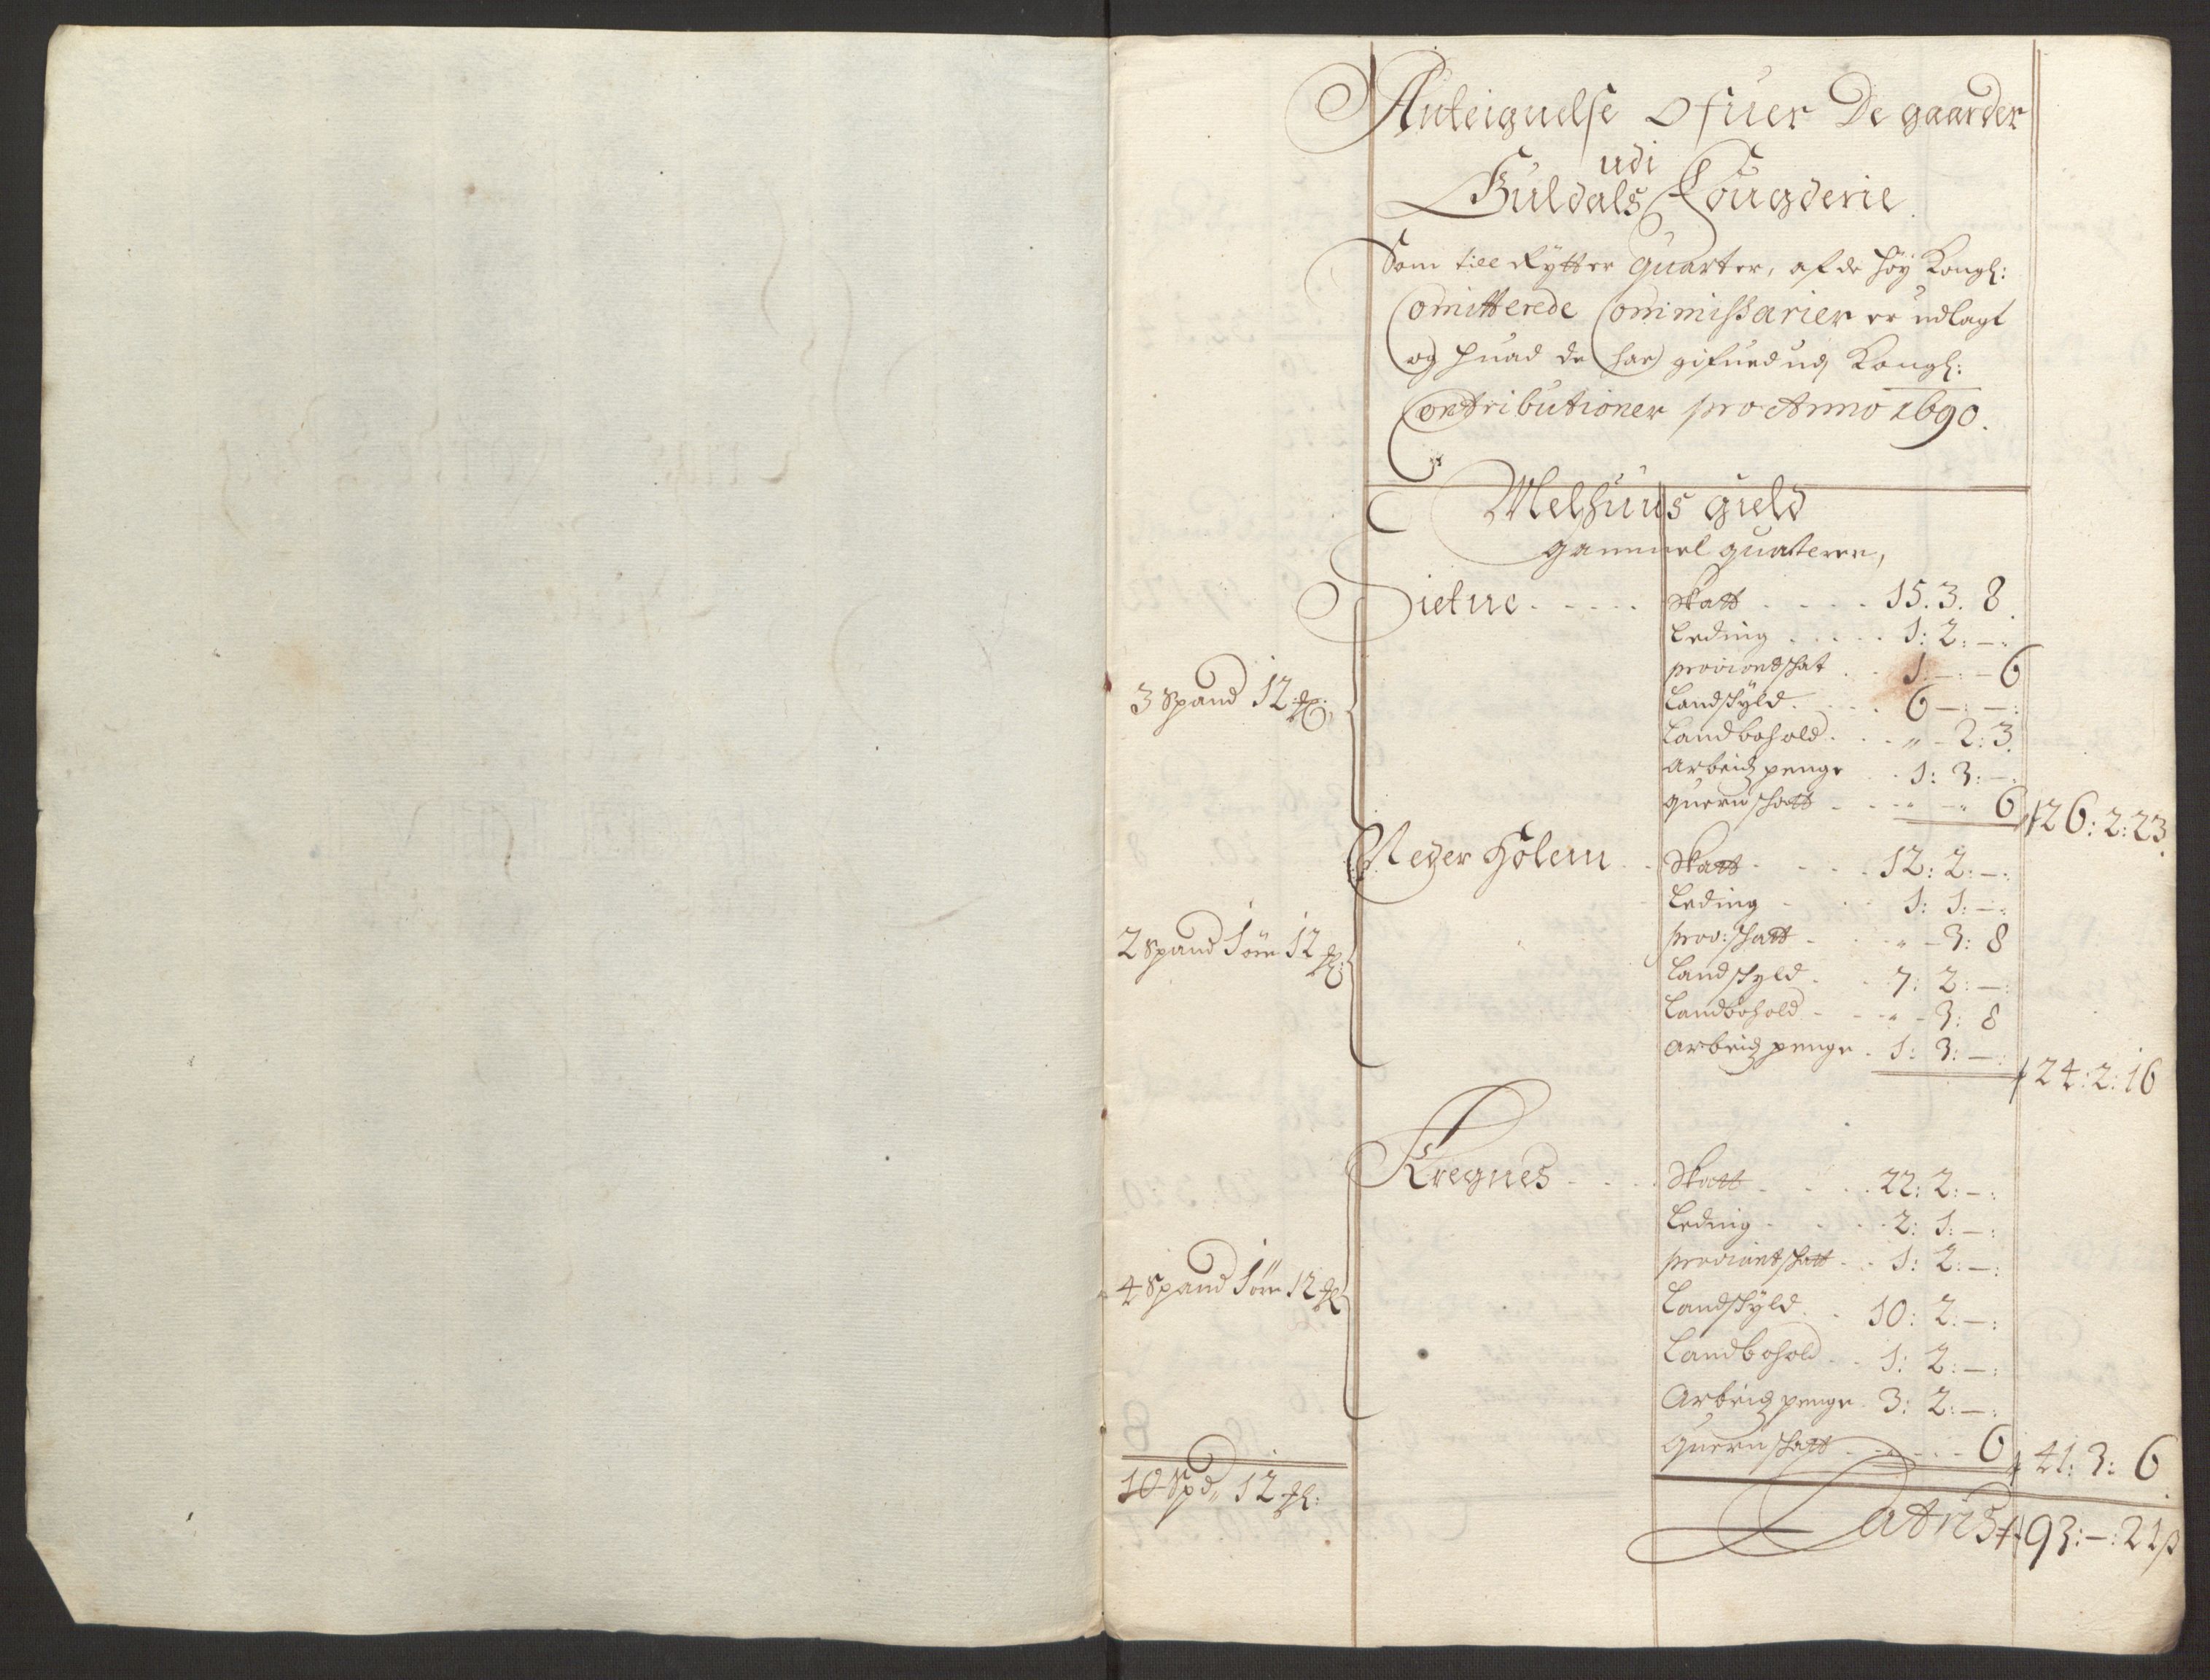 Anteignelse ofuer De gaarder
udi
Guldals Fougderie.
Som till Rytter Quarter, af de höy Kongl:
Comitterede Commissarier er udlagt
og huad de har gifued udj Kongl:
Contributioner pro Anno 1690.
Melhuus gield
gammel quaterer,
Sietne - - - - - Skatt - - - - 15. 3. 8.
Leding - - - - - 1: 2: —:
proviandschat - - 1: —: — 6
3 Spand 12
Landskyld - - - - 6 —: —:
Landbohold - - - „ - 2: 3.
Arbeidz penge - - 1: 3: —:
quernschatt - - - „ — „ 6 26: 2: 23.
Neder Hølem - - Skatt - - - - 12: 2: —:
Leding - - - 1: 1: —:
2 Spand 1 öre 12
prov: schatt - - - „ — 3: 8
Landskyld - - - 7: 2: —:
Landbohold - - - „ - 3: 8
Arbeidz penge - 1: 3: —:
24: 2: 16
Kregnes - - - Skatt - - - - 22: 2: —:
Leding - - - - 2: 1: —:
proviantschatt - - 1: 2: —:
4 Spand 1 öre 12
Landskyld - - 10: 2: —:
Landbohold - - 1: 2: —:
Arbeidz penge - 3: 2: —:
quernschatt - - - - - 6 41: 3: 6.
10 Spd„ 12
Latris 93: —: 21 β